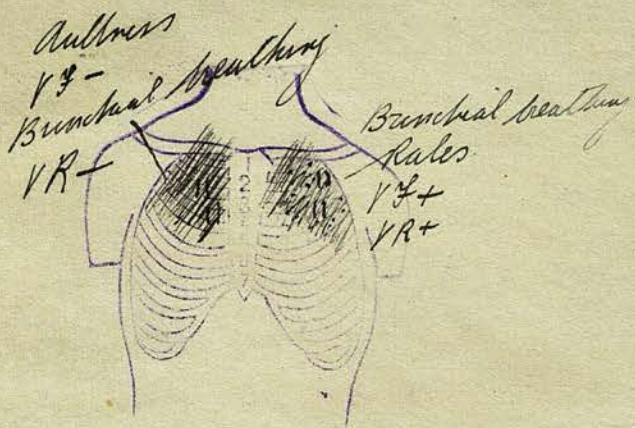 Dullness
VF -
Bronchial breathing
VR -
Bronchial breathing
Rales
VF +
VR +